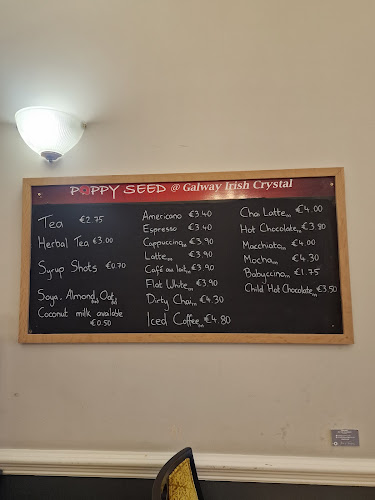 POPPY SEED @ Galway Irish Crystal
Tea €2.75
Herbal Tea €3.00
Syrup Shots €0.70
Soya, Almond, Oat,
Coconut milk available
€0.50
Americano €3.40
Espresso €3.40
Cappuccino €3.90
Latte €3.90
Café au lait €3.90
Flat White €3.90
Dirty Chai €4.30
Iced Coffee €4.80
Chai Latte €4.00
Hot Chocolate €3.80
Macchiato €4.00
Mocha €4.30
Babyccino €1.75
Child Hot Chocolate €3.50